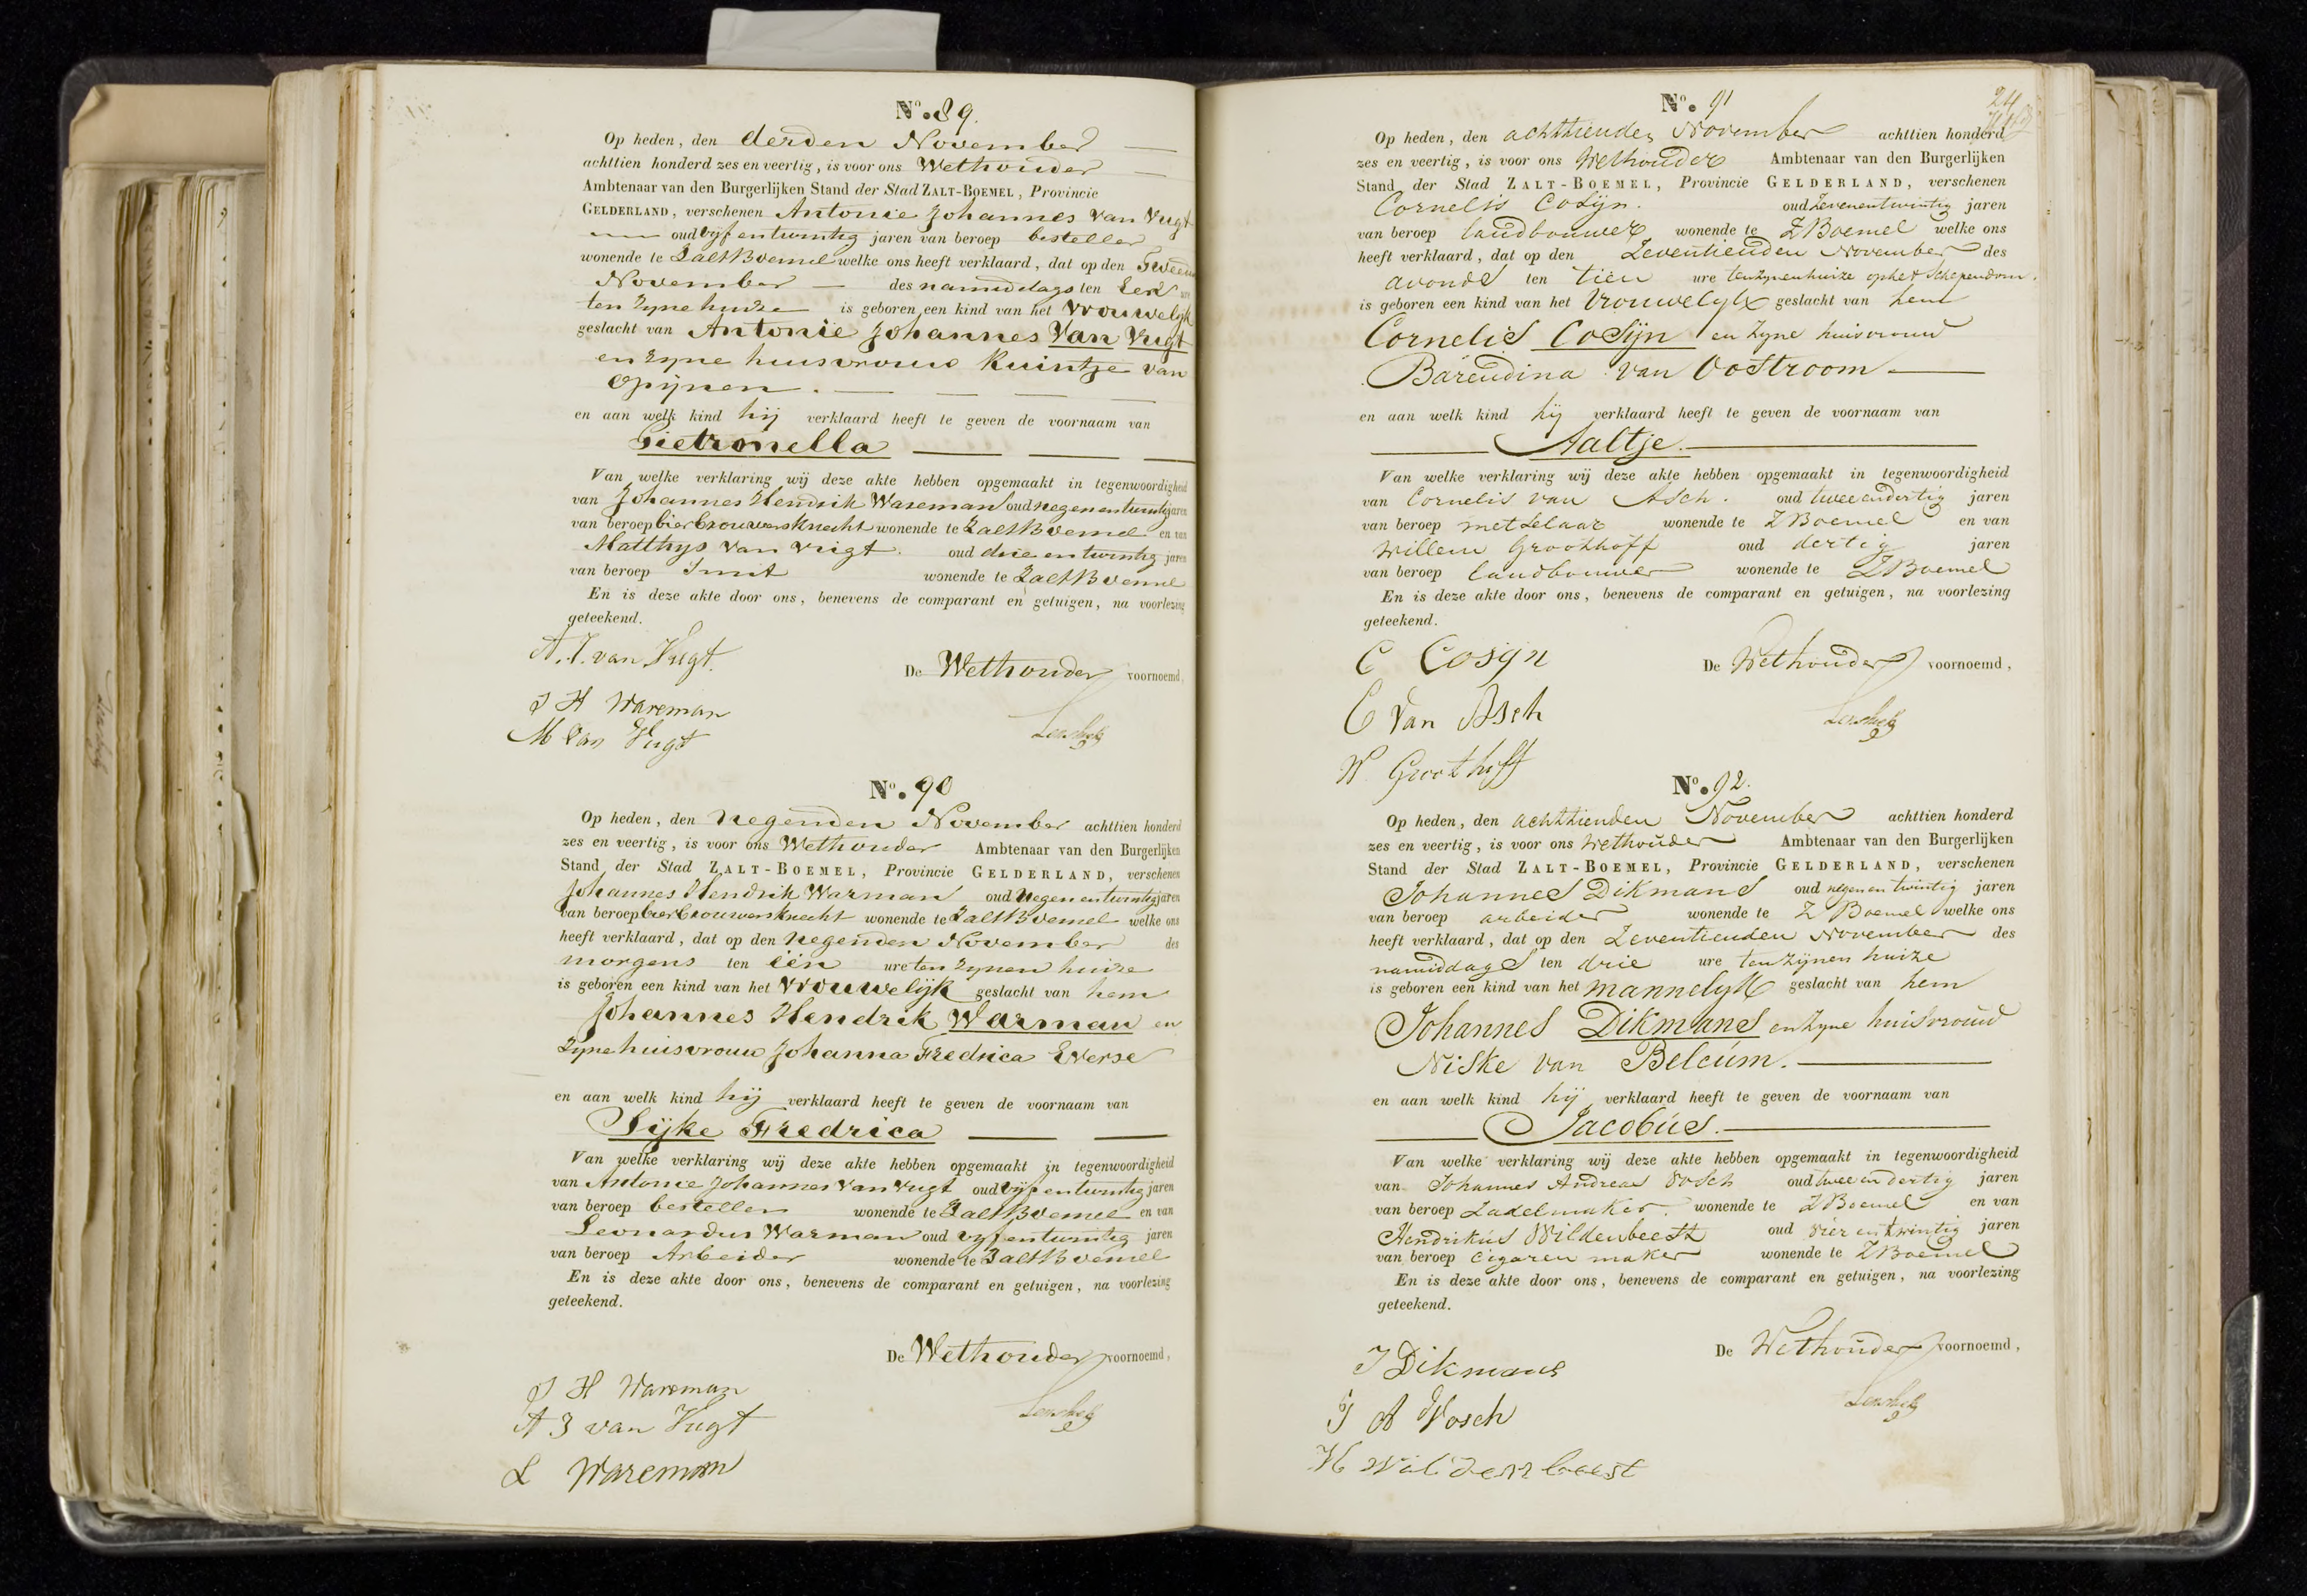 No. 89.
Op heden, den derden November
achttien honderd zes en veertig, is voor ons Wethouder
Ambtenaar van den Burgerlijken Stand der Stad ZALT-BOEMEL, Provincie
GELDERLAND, verschenen Antonie Johannes van Vugt
oud vyf en twintig jaren van beroep besteller
wonende te Zalt Boemel welke ons heeft verklaard, dat op den Tweeden
November des namiddags ten een ure
ten zyne huize is geboren een kind van het vrouwelyk
geslacht van Antonie Johannes Van Vugt
en zyne huisvrouw Kuintje van
Opijnen.
en aan welk kind hij verklaard heeft te geven de voornaam van
Pietronella
Van welke verklaring wij deze akte hebben opgemaakt in tegenwoordigheid
van Johannes Hendrik Wareman oud negen en twintig jaren
van beroep bierbrouwersknecht wonende te Zalt Boemel en van
Matthys van Vugt. oud drie en twintig jaren
van beroep Smit wonende te Zalt Boemel
En is deze akte door ons, benevens de comparant en getuigen, na voorlezing
geteekend.
A. J. van Vugt.
De Wethouder voornoemd,
J H Wareman
M van Vugt
No. 90
Op heden, den negenden November achttien honderd
zes en veertig, is voor ons Wethouder Ambtenaar van den Burgerlijken
Stand der Stad ZALT-BOEMEL, Provincie GELDERLAND, verschenen
Johannes Hendrik Warman oud negen en twintig jaren
van beroep bierbrouwersknecht wonende te Zalt Boemel welke ons
heeft verklaard, dat op den negenden November des
morgens ten één ure ten zynen huize
is geboren een kind van het vrouwelijk geslacht van hem
Johannes Hendrik Warman en
zyne huisvrouw Johanna Fredrica Everse
en aan welk kind hij verklaard heeft te geven de voornaam van
Sijke Fredrica
Van welke verklaring wij deze akte hebben opgemaakt in tegenwoordigheid
van Antonie Johannes van Vugt oud vijf en twintig jaren
van beroep besteller wonende te Zalt Boemel en van
Leonardus Warman oud vyf en twintig jaren
van beroep Arbeider wonende te Zalt Boemel
En is deze akte door ons, benevens de comparant en getuigen, na voorlezing
geteekend.
De Wethouder voornoemd,
J H Wareman
A J van Vugt
L Wareman
24
No. 91
Op heden, den achttienden November achttien honderd
zes en veertig, is voor ons Wethouder Ambtenaar van den Burgerlijken
Stand der Stad ZALT-BOEMEL, Provincie GELDERLAND, verschenen
Cornelis Cosijn. oud zevenentwintig jaren
van beroep landbouwer wonende te ZBoemel welke ons
heeft verklaard, dat op den Zeventienden November des
avonds ten tien ure ten zynen huize op het Schependom.
is geboren een kind van het Vrouwelyk geslacht van hem
Cornelis Cosijn en zyne huisvrouw
Barendina van Oostroom
en aan welk kind hij verklaard heeft te geven de voornaam van
Aaltje.
Van welke verklaring wij deze akte hebben opgemaakt in tegenwoordigheid
van Cornelis van Asch. oud twee en dertig jaren
van beroep metselaar wonende te ZBoemel en van
Willem Groothoff oud dertig jaren
van beroep landbouwer wonende te ZBoemel
En is deze akte door ons, benevens de comparant en getuigen, na voorlezing
geteekend.
C Cosijn
De Wethouder voornoemd,
C van Asch
W Groothoff
No. 92.
Op heden, den achttienden November achttien honderd
zes en veertig, is voor ons Wethouder Ambtenaar van den Burgerlijken
Stand der Stad ZALT-BOEMEL, Provincie GELDERLAND, verschenen
Johannes Dikmans oud negen en twintig jaren
van beroep arbeider wonende te Z Boemel welke ons
heeft verklaard, dat op den Zeventienden November des
namiddags ten drie ure ten zijnen huize
is geboren een kind van het mannelyk geslacht van hem
Johannes Dikmans en zyne huisvrouw
Niske van Beleúm.
en aan welk kind hij verklaard heeft te geven de voornaam van
Jacobús.
Van welke verklaring wij deze akte hebben opgemaakt in tegenwoordigheid
van Johannes Andreas Vosch oud twee en dertig jaren
van beroep Zadelmaker wonende te ZBoemel en van
Hendrikús Wildenbeest oud vier en twintig jaren
van beroep Cigaren maker wonende te ZBoemel
En is deze akte door ons, benevens de comparant en getuigen, na voorlezing
geteekend.
De Wethouder voornoemd,
J Dikmans
J A Vosch
H Wildenbeest